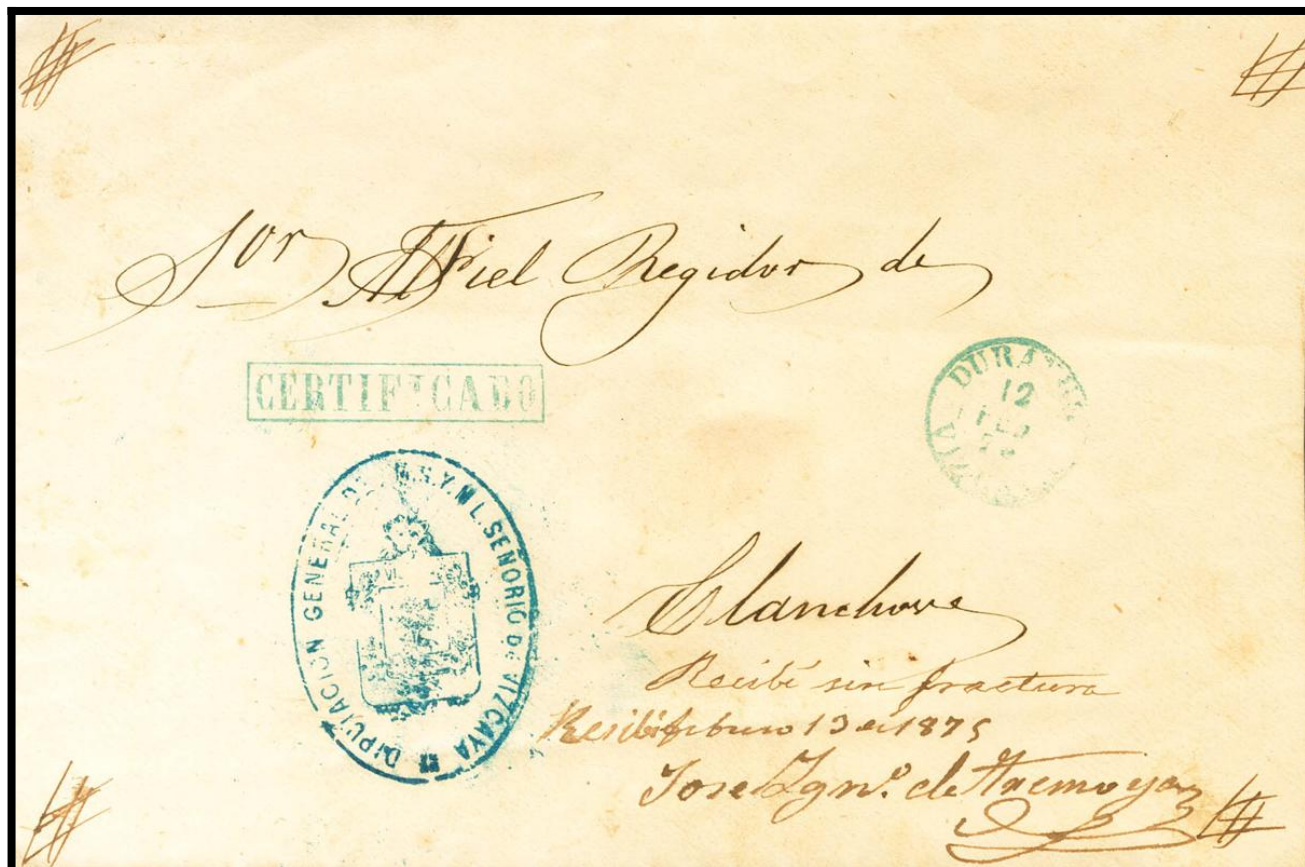 Sor Fiel Regidor de
CERTIFICADO
DURA
12
DIPUTACION GENERAL DE M.N.Y.M.L. SEÑORIO DE VIZCAYA
Elanchove
Recibí sin fractura
Recibí febrero 13 de 1875
Jose Ygn.º de